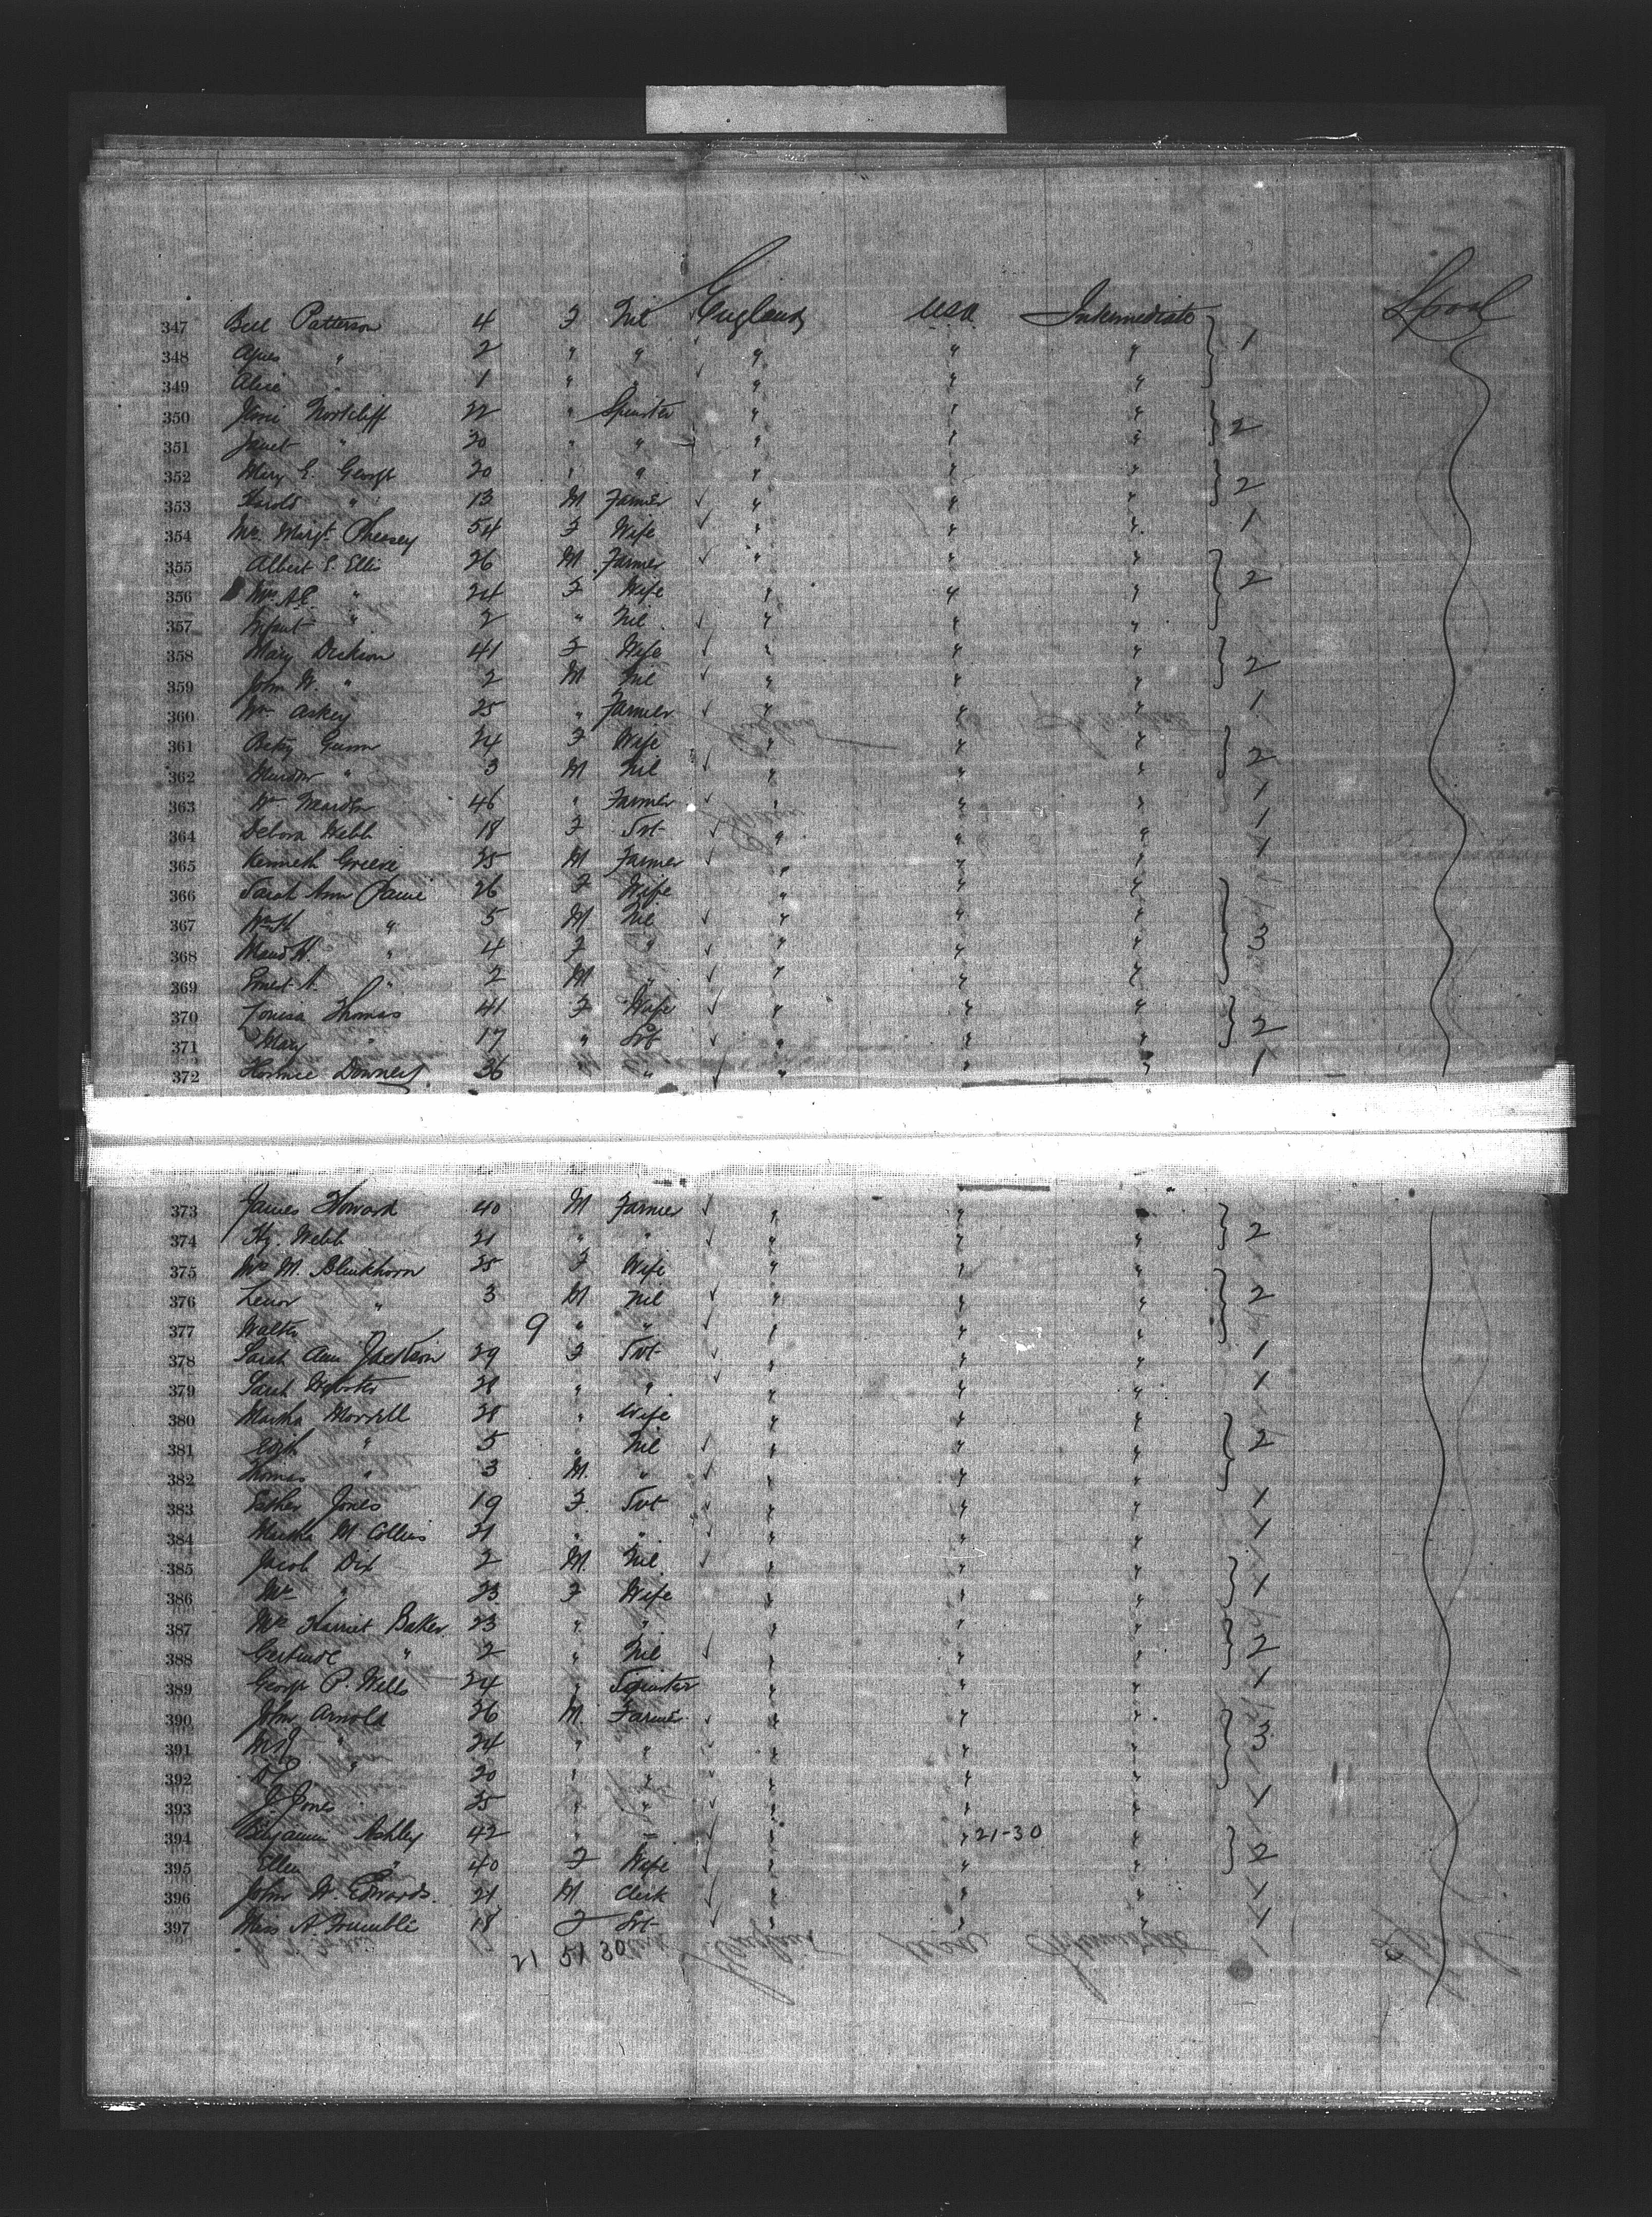 347 Bell Patterson 4 F Nil England USA Intermediate 1 L'pool
348 Agnes " 2 " " " " "
349 Alice " 1 " " " " "
350 Northcliff 22 " Spinster " " " 2
351 Janet " 20 " " " " "
352 Mary E. George 20 " " " " " 2
353 Harold " 13 M Farmer " " "
354 Mrs. Margt. Pheasey 54 F Wife " " " 1
355 Albert E. Ellis 26 M Farmer " " " 2
356 Mrs. A.E. " 24 F Wife " " "
357 Infant " 2 " Nil " " "
358 Mary Dickson 41 F Wife " " " 2
359 John W. " 2 M Nil " " "
360 Wm Askey 25 " Farmer " " " 1
361 Betsy Gunn 24 F Wife " " " 2
362 " 3 M Nil " " "
363 Wm Marden 46 " Farmer " " " 1
364 Debora Webb 18 F Svt " " " 1
365 Kenneth Grieve 25 M Farmer " " " 1
366 Sarah Ann 26 F Wife " " " 3
367 Wm H " 5 M Nil " " "
368 Maud H. " 4 F " " " "
369 Ernest A. " 2 M " " " "
370 Louisa Thomas 41 F Wife " " " 2
371 Mary " 17 " Svt " " "
372 36 " " " " " 1
373 James Howard 40 M Farmer " " " 2
374 Hy. Webb 21 " " " " "
375 Mrs M. Blinkhorn 25 F Wife " " " 2
376 " 3 M Nil " " "
377 Walter " 9 " " " " "
378 Sarah Ann Jackson 29 F Svt " " " 1
379 Sarah Webster 28 " " " " " 1
380 Martha Morrell 28 " Wife " " " 2
381 " 5 " Nil " " "
382 Thomas " 3 M " " " "
383 Esther Jones 19 F Svt " " " 1
384 Martha M Collins 21 " " " " " 1
385 Jacob Dix 2 M Nil " " " 1
386 Mrs " 23 F Wife " " "
387 Mrs Harriet Baker 23 " " " " " 2
388 Gertrude " 2 " Nil " " "
389 George P. Wells 24 " Spinster " " " 1
390 John Arnold 26 M Farmer " " " 3
391 " 24 " " " " "
392 " 20 " " " " "
393 J. Jones 25 " " " " " 1
394 Benjamin Ashley 42 " " " " 21-30 " 2
395 Ellen " 40 F Wife " " "
396 John W. Edwards 21 M Clerk " " " 1
397 Miss A. Trumble 18 F Svt " " " 1
21 51 30